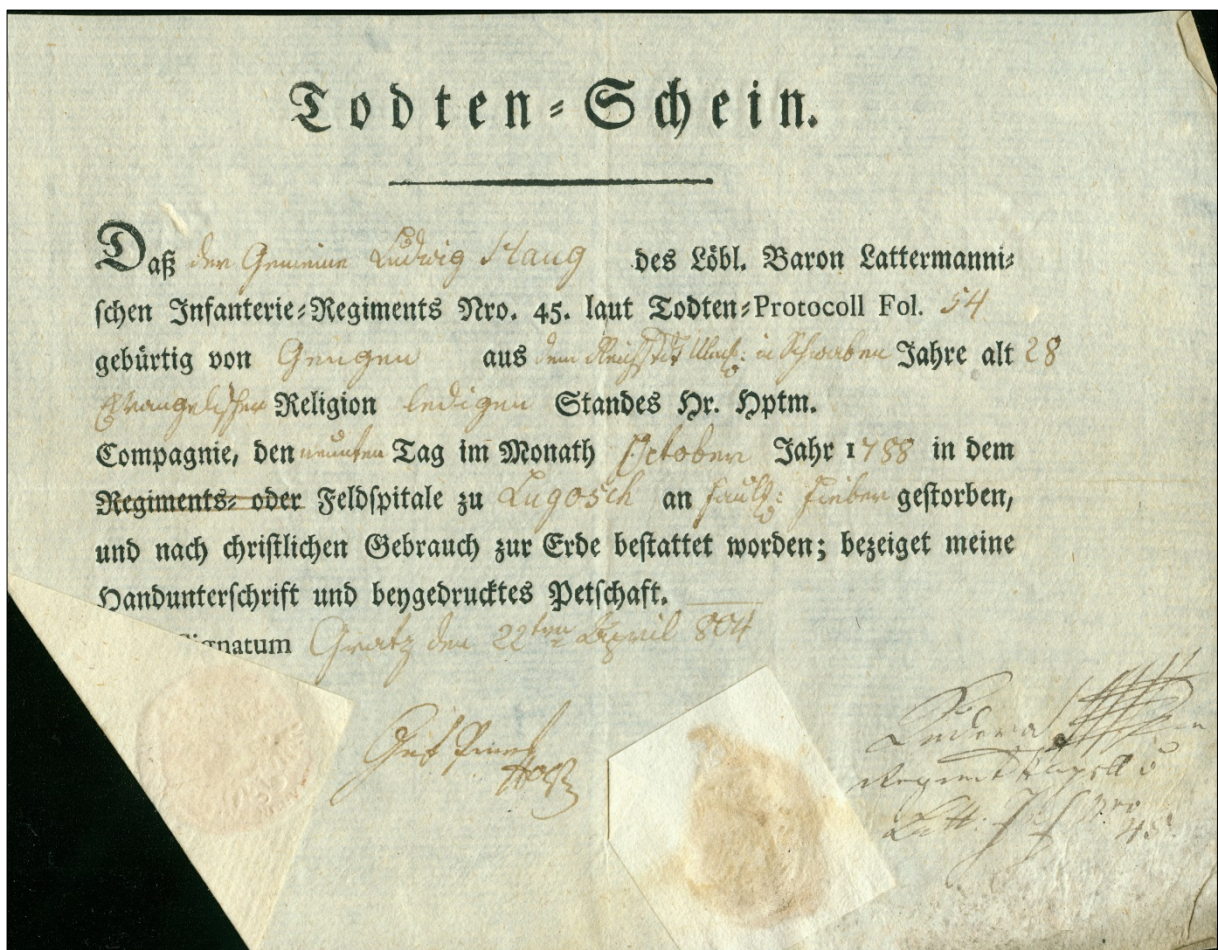 Todten-Schein.
Daß der Gemeine Ludwig Haug des Löbl. Baron Lattermanni-
schen Infanterie-Regiments Nro. 45. laut Todten-Protocoll Fol. 54
gebürtig von Gengen aus dem in Schwaben Jahre alt 28
Evangelischer Religion ledigen Standes Hr. Hptm.
Compagnie, den neunten Tag im Monath October Jahr 1788 in dem
Regiments- oder Feldspitale zu Lugosch an faul: Fieber gestorben,
und nach christlichen Gebrauch zur Erde bestattet worden; bezeiget meine
Handunterschrift und beygedrucktes Petschaft.
Signatum Gratz den 22ten April 804
Nro
45